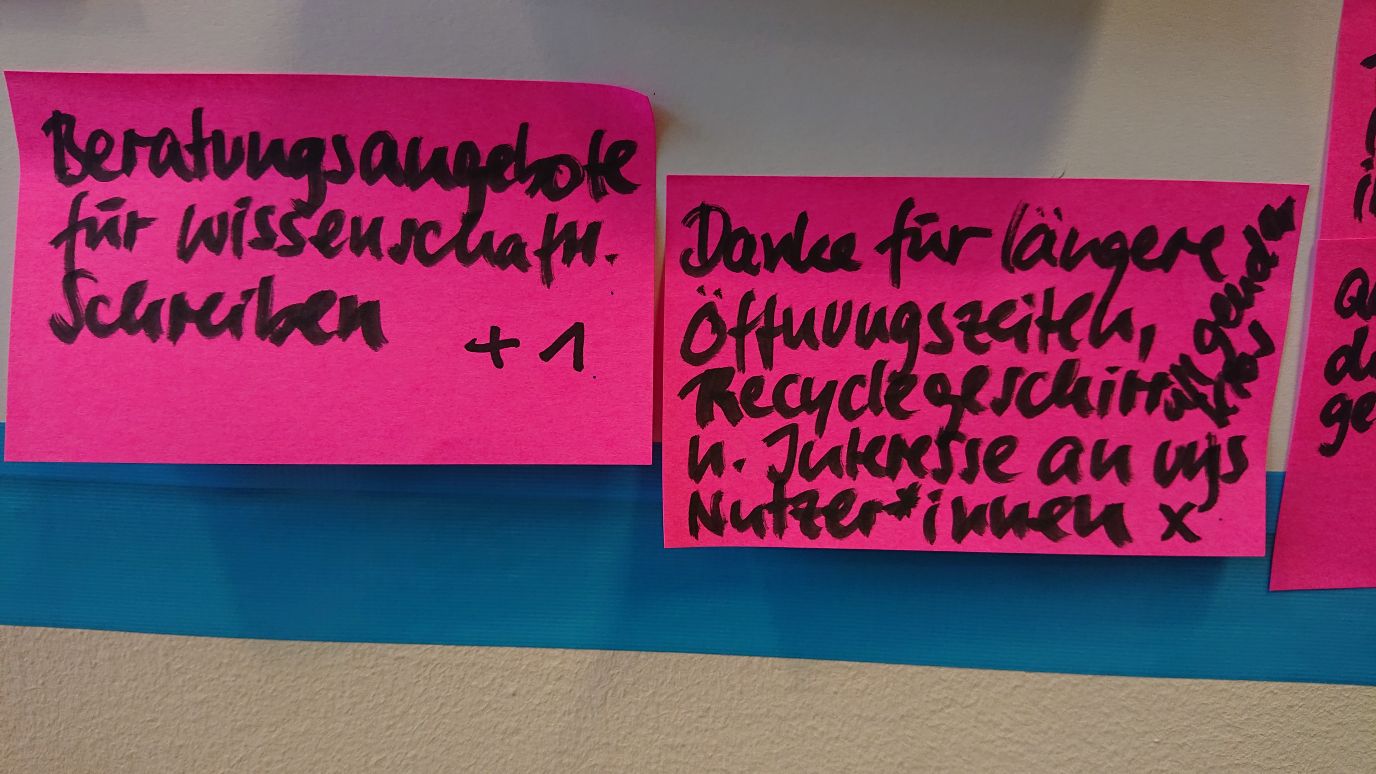 Beratungsangebote
für wissenschaftl.
Schreiben
+ 1
Danke für längere
Öffnungszeiten,
Recyclegeschirr
u. Interesse an uns
Nutzer*innen x